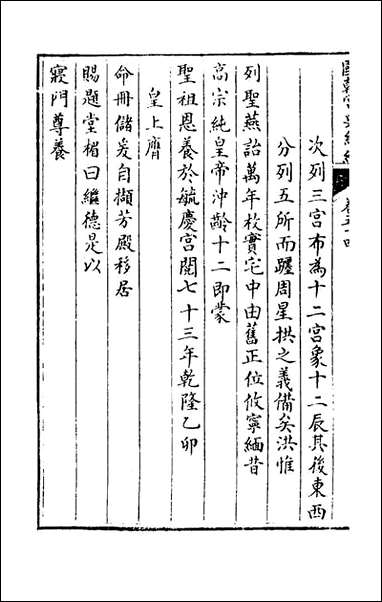 國朝宮史續編
卷五十四
次列三宮布為十二宮象十二辰其後東西
分列五所而躔周星拱之義備矣洪惟
列聖燕詒萬年枚實宅中由舊正位攸寧緬昔
高宗純皇帝沖齡十二即蒙
聖祖恩養於毓慶宮閱七十三年乾隆乙卯
皇上膺
命冊儲爰自擷芳殿移居
賜題堂楣曰繼德是以
寢門尊養